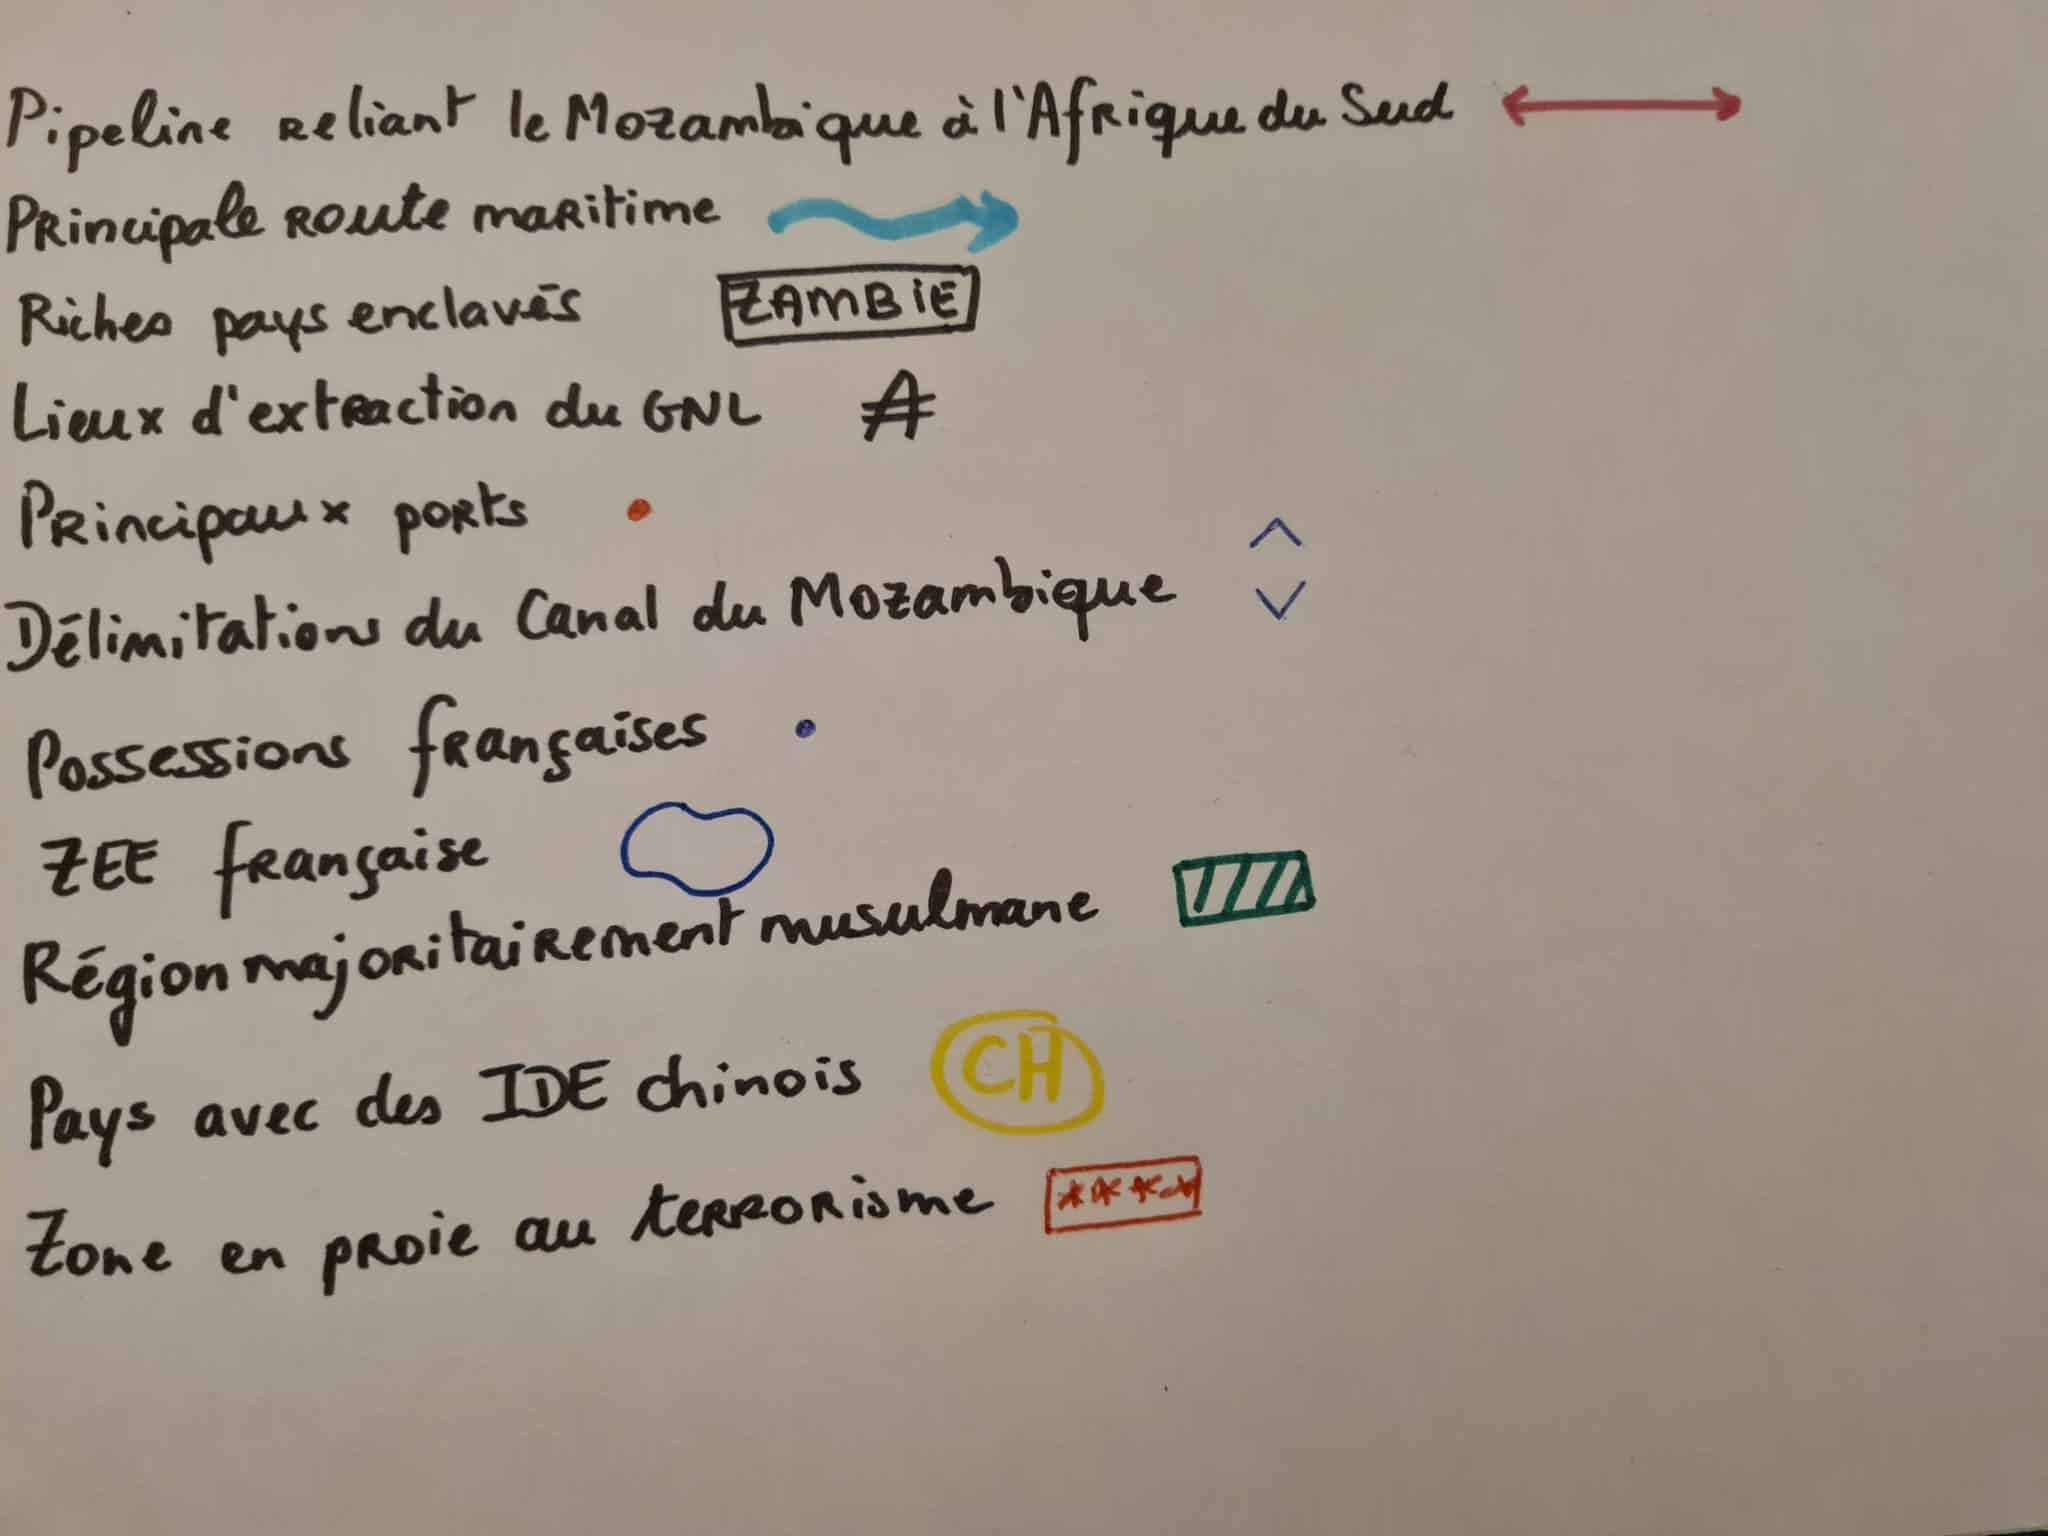 Pipeline reliant le Mozambique à l'Afrique du Sud
Principale route maritime
Riches pays enclavés ZAMBIE
Lieux d'extraction du GNL
Principaux ports
Délimitations du Canal du Mozambique
Possessions françaises
ZEE française
Région majoritairement musulmane
Pays avec des IDE chinois CH
Zone en proie au terrorisme